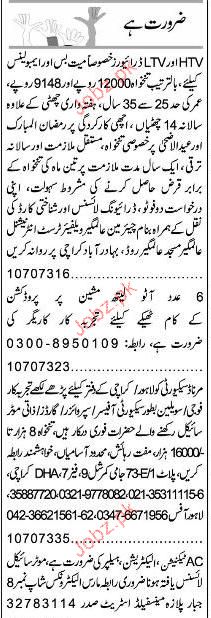 ضرورت ہے
HTV اور LTV ڈرائیورز خصوصاً میت بس اور ایمبولینس
کیلئے، بالترتیب تنخواہ 12000 روپے اور 9148 روپے،
عمر کی حد 25 سے 35 سال، ہفتہ واری چھٹی کے علاوہ
سالانہ 14 چھٹیاں، اچھی کارکردگی پر رمضان المبارک
اور عیدالاضحیٰ پر خصوصی تنخواہ، مستقل ملازمت اور سالانہ
ترقی، ایک سال مدت ملازمت پر تین ماہ کی تنخواہ کے
برابر قرض حاصل کرنے کی مشروط سہولت، اپنی
درخواست دو فوٹو، ڈرائیونگ لائسنس اور شناختی کارڈ کی
نقل کے ہمراہ بنام چیئرمین عالمگیر ویلفیئر ٹرسٹ انٹرنیشنل
عالمگیر مسجد عالمگیر روڈ، بہادر آباد کراچی پر روانہ کریں
10707316
6 عدد آٹو لیتھ مشین پر پروڈکشن
کے کام ٹھیکے کیلئے تجربہ کار کاریگر کی
ضرورت ہے، رابطہ: 0300-8950109
10707323
سیکورٹی کو لاہور/ کراچی کے دفتر کیلئے پڑھے لکھے تجربہ کار
فوجی/ سویلین بطور سیکورٹی آفیسر/ سپروائزر/ گارڈز/ ذاتی موٹر
سائیکل رکھنے والے حضرات فوری درکار ہیں، تنخواہ 8 ہزار تا
16000/- ہزار، مفت رہائش، محدود آسامیاں، خواہشمند رابطہ
کریں، پلاٹ 73-E/1 جامی کمرشل 9، فیز 7، DHA کراچی،
021-35311115-6، 0321-9778082، 35887720،
لاہور آفس 0347-6671956، 042-36621561-62
10707335
AC ٹیکنیشن، الیکٹریشن، ہیلپر کی ضرورت ہے، موٹر سائیکل
لائسنس یافتہ ہونا ضروری رابطہ مارس الیکٹرونکس شاپ نمبر 8
جبار پلازہ مینسفیلڈ اسٹریٹ صدر 32783114
Jobz.pk